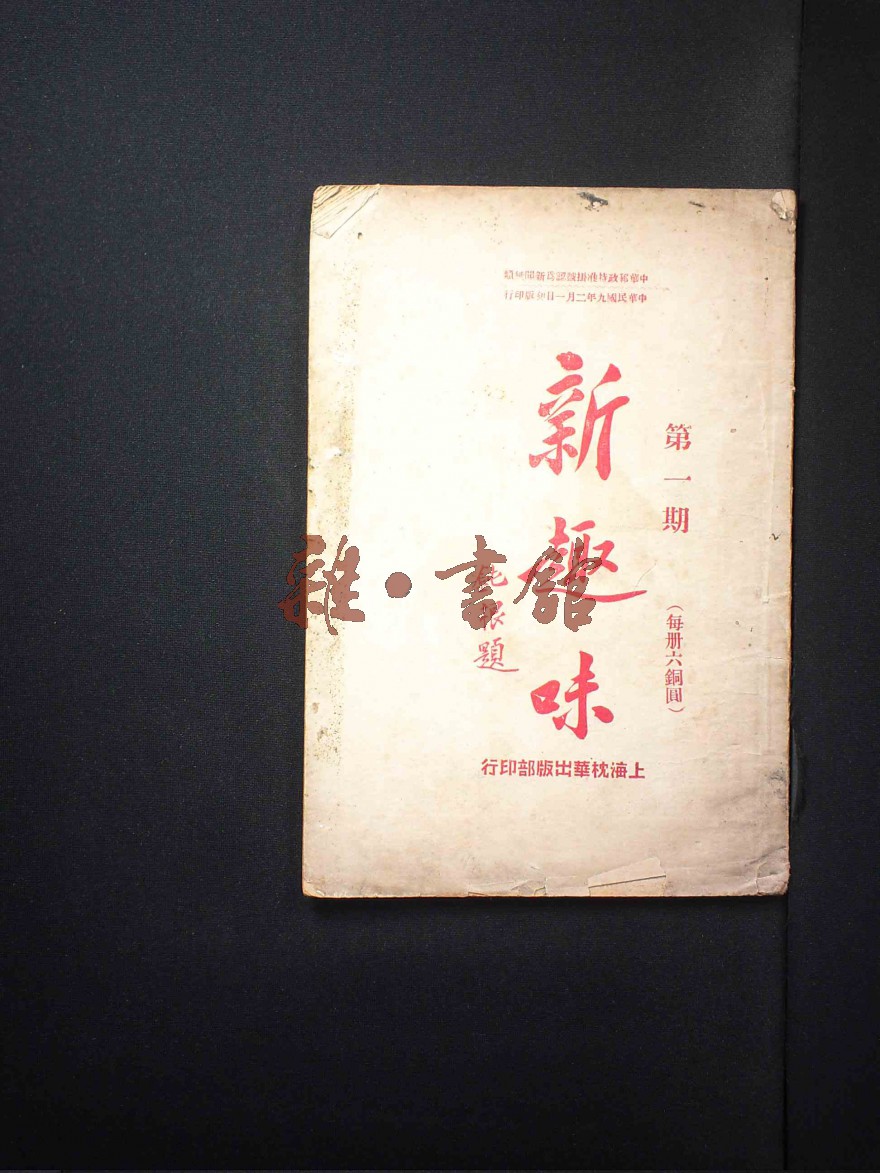 中華郵政特准掛號認爲新聞紙類
中華民國九年二月一日初版印行
第一期
（每册六銅圓）
新趣味
題
上海枕華出版部印行
雜·書館